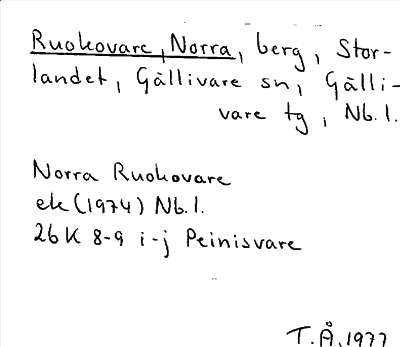 Ruokovare, Norra, berg, Stor-
landet, Gällivare sn, Gälli-
vare tg, Nb.l.
Norra Ruokovare
ek (1974) Nb.l.
26K 8-9 i-j Peinisvare
T.Å. 1977